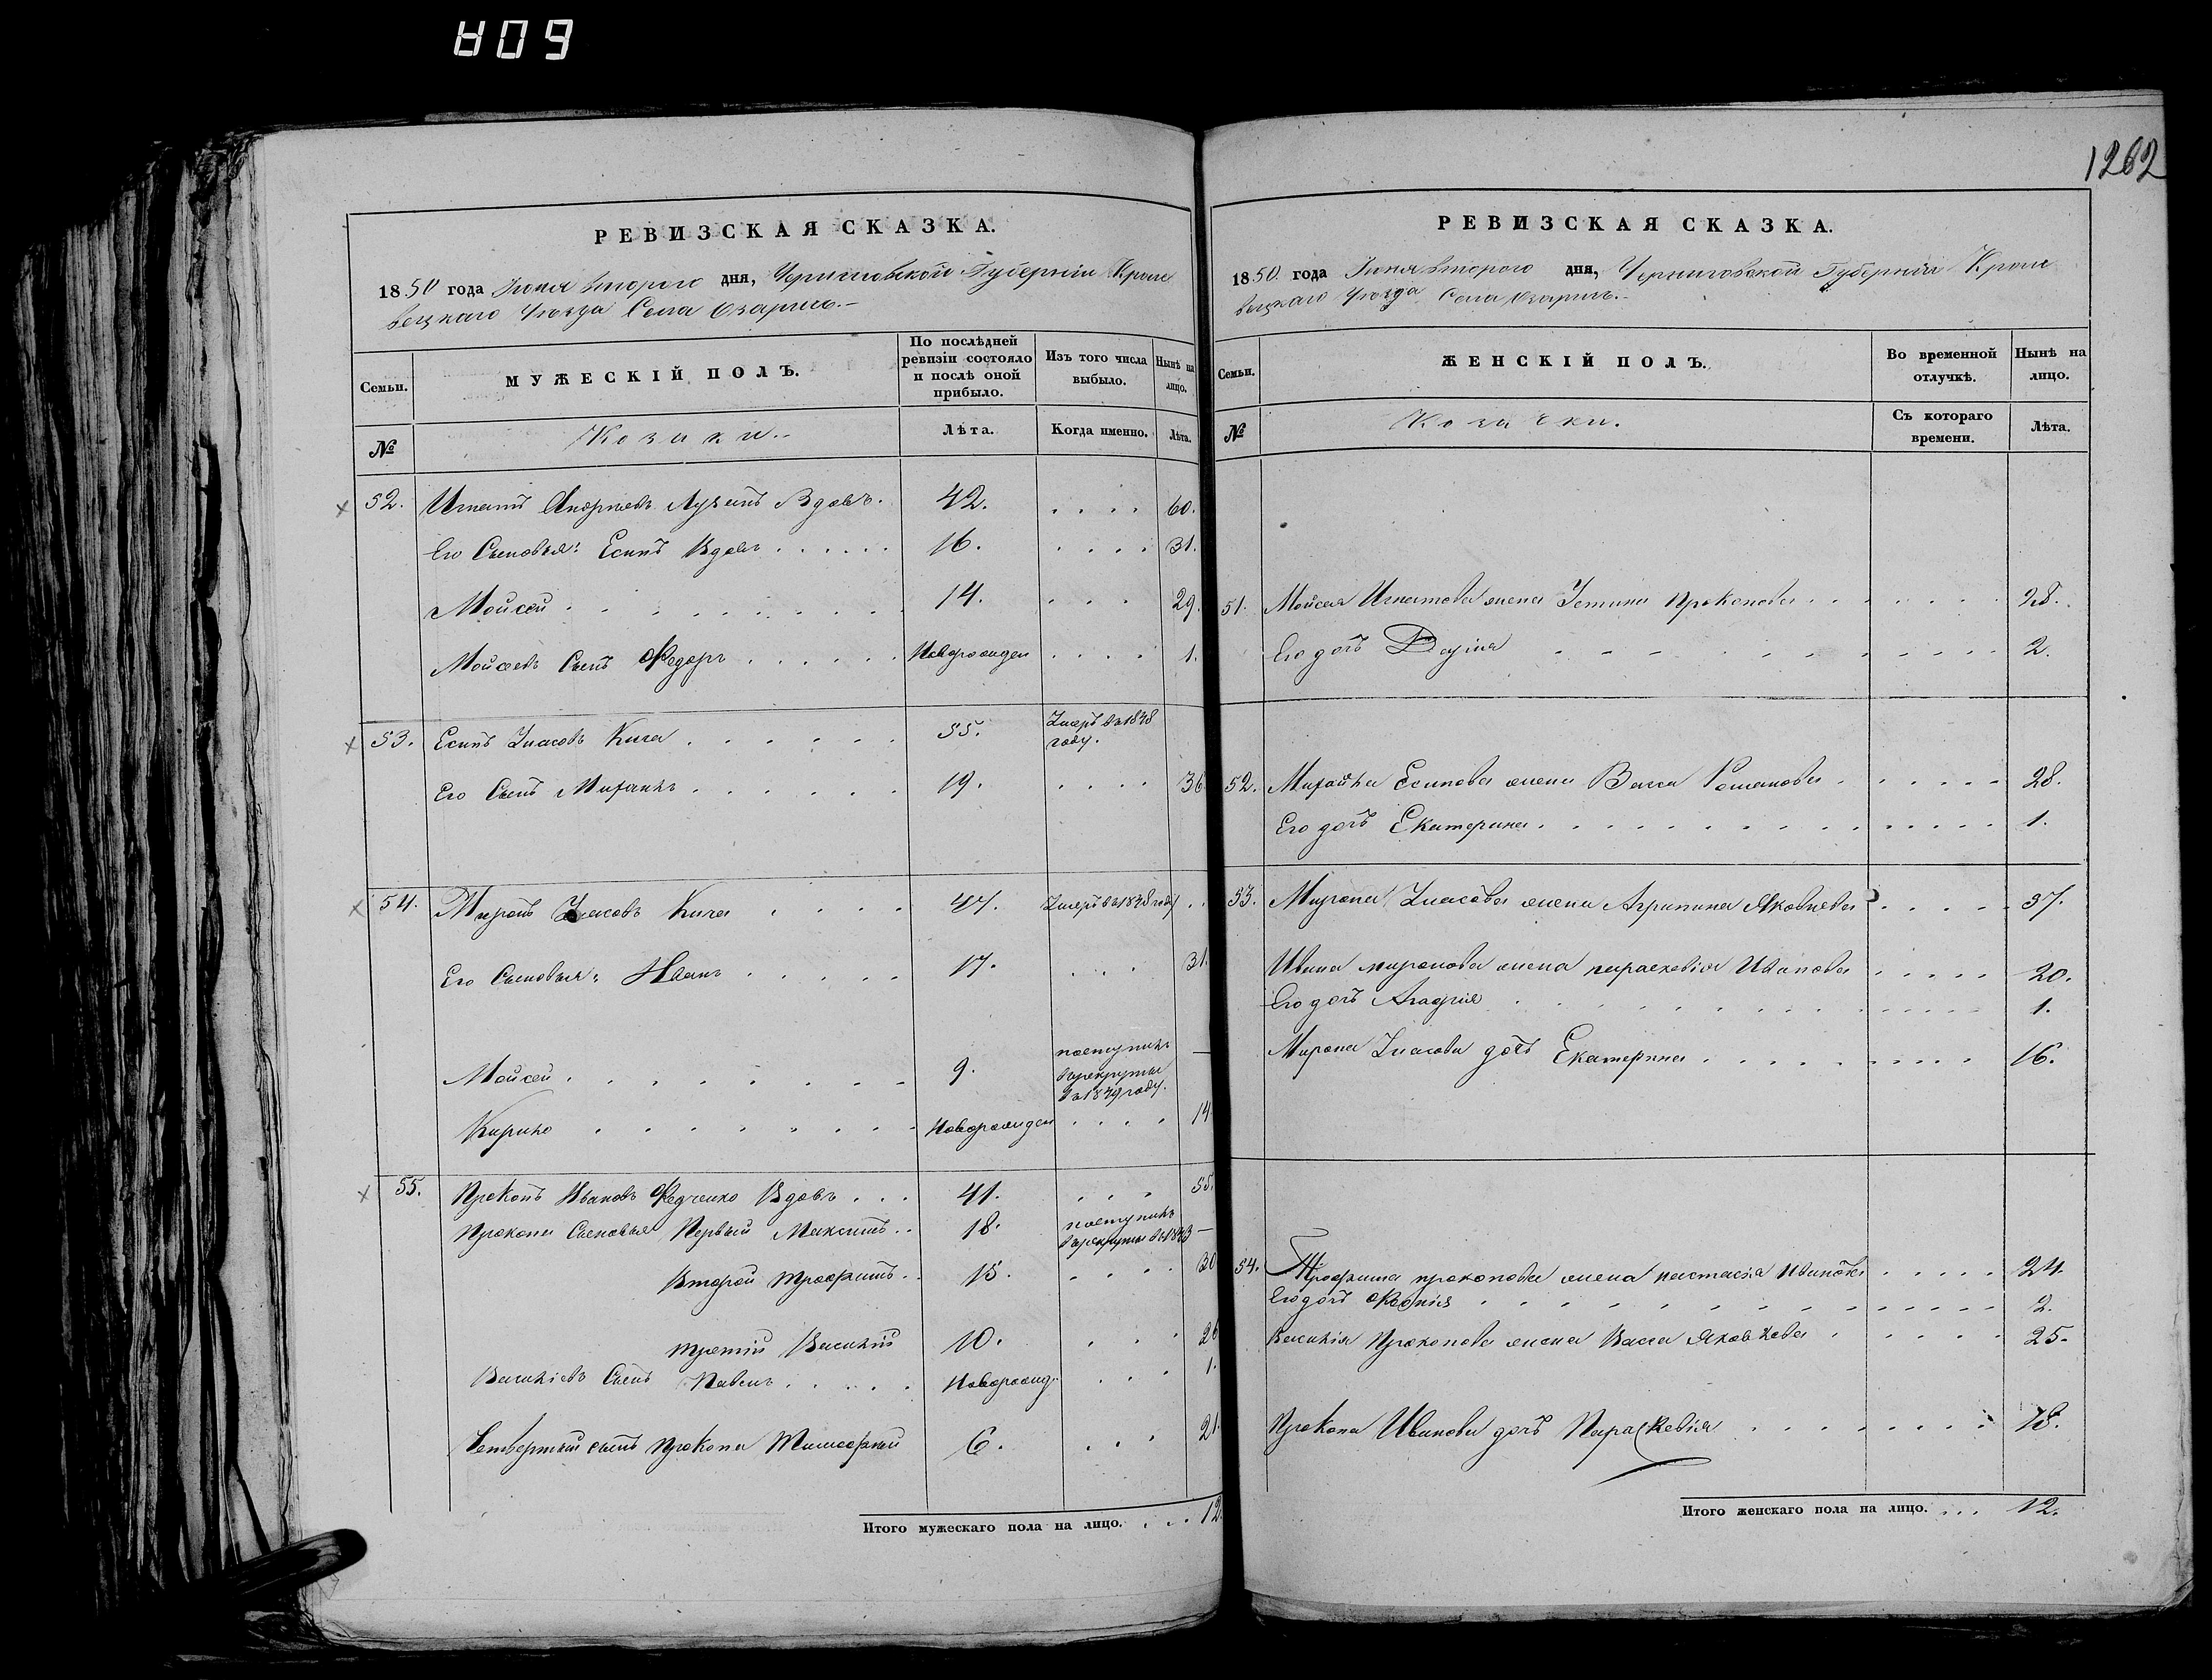 609
1262
РЕВИЗСКАЯ СКАЗКА.
1850 года Іюня второго дня, Черниговской Губерніи Кроле
вецкаго Уѣзда Села Озарич.
Семьи.
МУЖЕСКІЙ ПОЛЪ.
По послѣдней ревизіи состояло и послѣ оной прибыло.
Изъ того числа выбыло.
Нынѣ на лицо.
№
Козаки.
Лѣта.
Когда именно.
Лѣта.
52. Игнатъ Андреевъ Вдовъ. 42. 60.
Его Сыновья: Есипъ Вдовъ 16. 31.
Мойсей 14. 29.
Мойсеевъ Сынъ Федоръ Новорожден 1.
53. Есипъ Власовъ Кича 55. Умеръ в 1838 году.
Его Сынъ Михаилъ 19. 36
54. Миронъ Власовъ Кича 47. Умеръ в 1848 году
Его Сыновья: Иванъ 17. 31.
Мойсей 9. поступилъ в рекруты в 1839 году. —
Кирило Новорожден 14.
55. Прокопъ Ивановъ Федченко Вдовъ 41. 55.
Прокопа Сыновья Первый Максимъ 18. поступилъ в рекруты в 1843 —
Второй Трофимъ 15. 30
третій Василій 10. 26
Василіевъ Сынъ Павелъ Новорожд. 1.
Четвертый сынъ Прокопа Тимофей 6. 21.
Итого мужескаго пола на лицо. 12.
РЕВИЗСКАЯ СКАЗКА.
1850 года Іюня второго дня, Черниговской Губерніи Кроле
вецкаго Уѣзда Села Озарич.
Семьи.
ЖЕНСКІЙ ПОЛЪ.
Во временной отлучкѣ.
Нынѣ на лицо.
№
Козачки.
Съ котораго времени.
Лѣта.
51. Мойсея Игнатова жена Устина Прокопова 28.
Его дочь 2.
52. Михайла Есипова жена Васса Романова 28.
Его дочь Екатерина 1.
53. Мирона Власова жена Агрипина Яковлева 37.
Ивана миронова жена параскевія Иванова 20.
Его дочь Агафия 1.
Мирона Власова дочь Екатерина 16.
54. Трофима прокопова жена настасія Иванова 24.
Его дочь Феонія 2.
Василія Прокопова жена Васса Яковлева 25.
Прокопа Иванова дочь Параскевія 18.
Итого женскаго пола на лицо. 12.